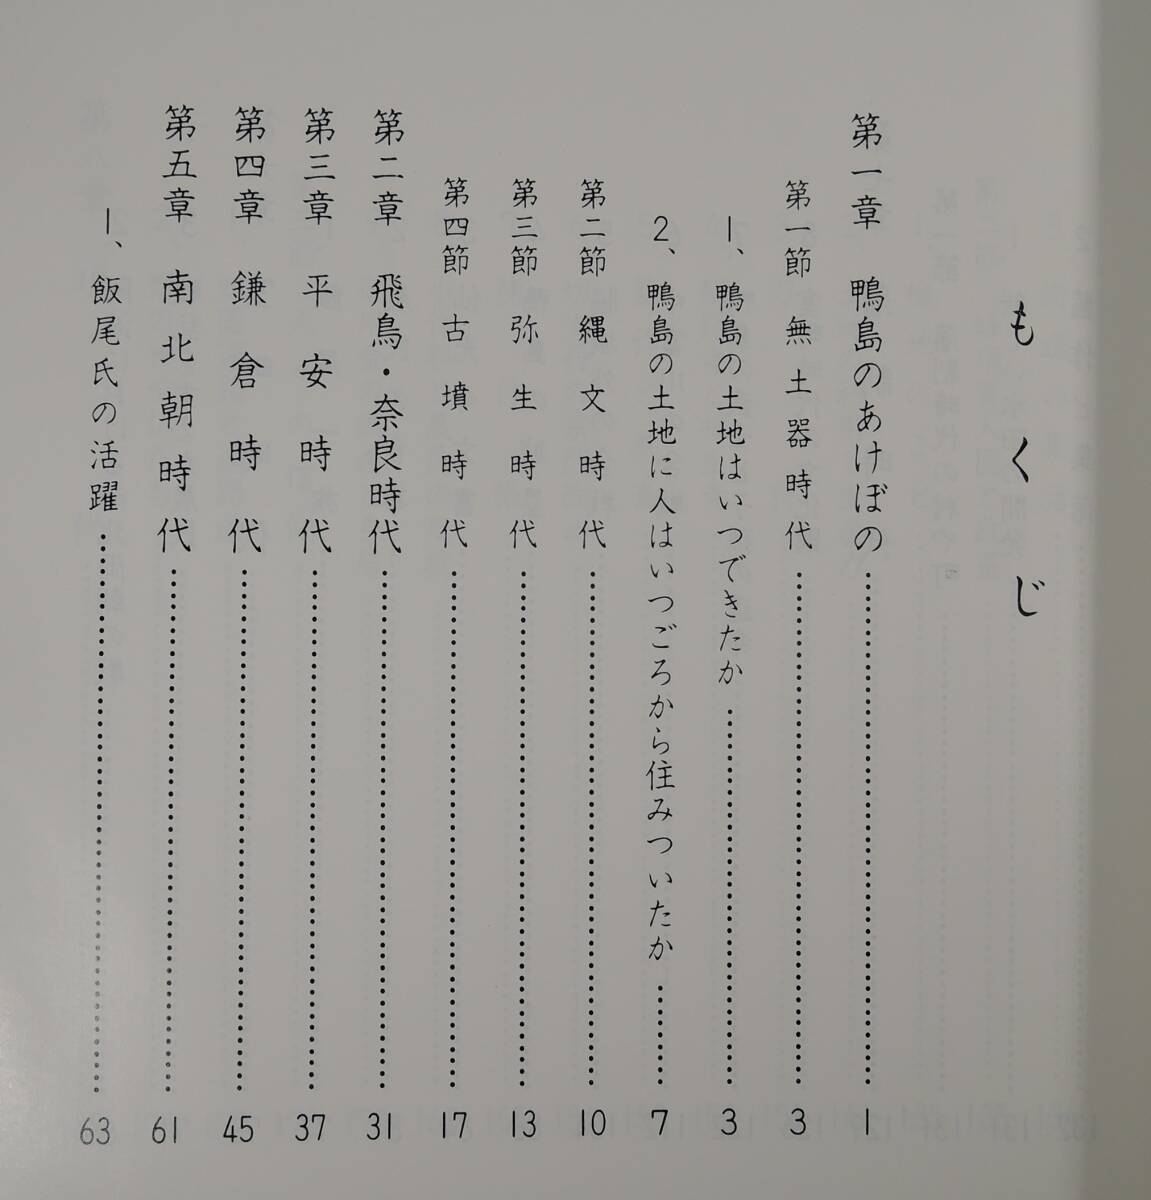 もくじ
第一章 鴨島のあけぼの……………………1
第一節 無土器時代……………………3
1、鴨島の土地はいつできたか……………………3
2、鴨島の土地に人はいつごろから住みついたか……………………7
第二節 縄文時代……………………10
第三節 弥生時代……………………13
第四節 古墳時代……………………17
第二章 飛鳥・奈良時代……………………31
第三章 平安時代……………………37
第四章 鎌倉時代……………………45
第五章 南北朝時代……………………61
1、飯尾氏の活躍……………………63